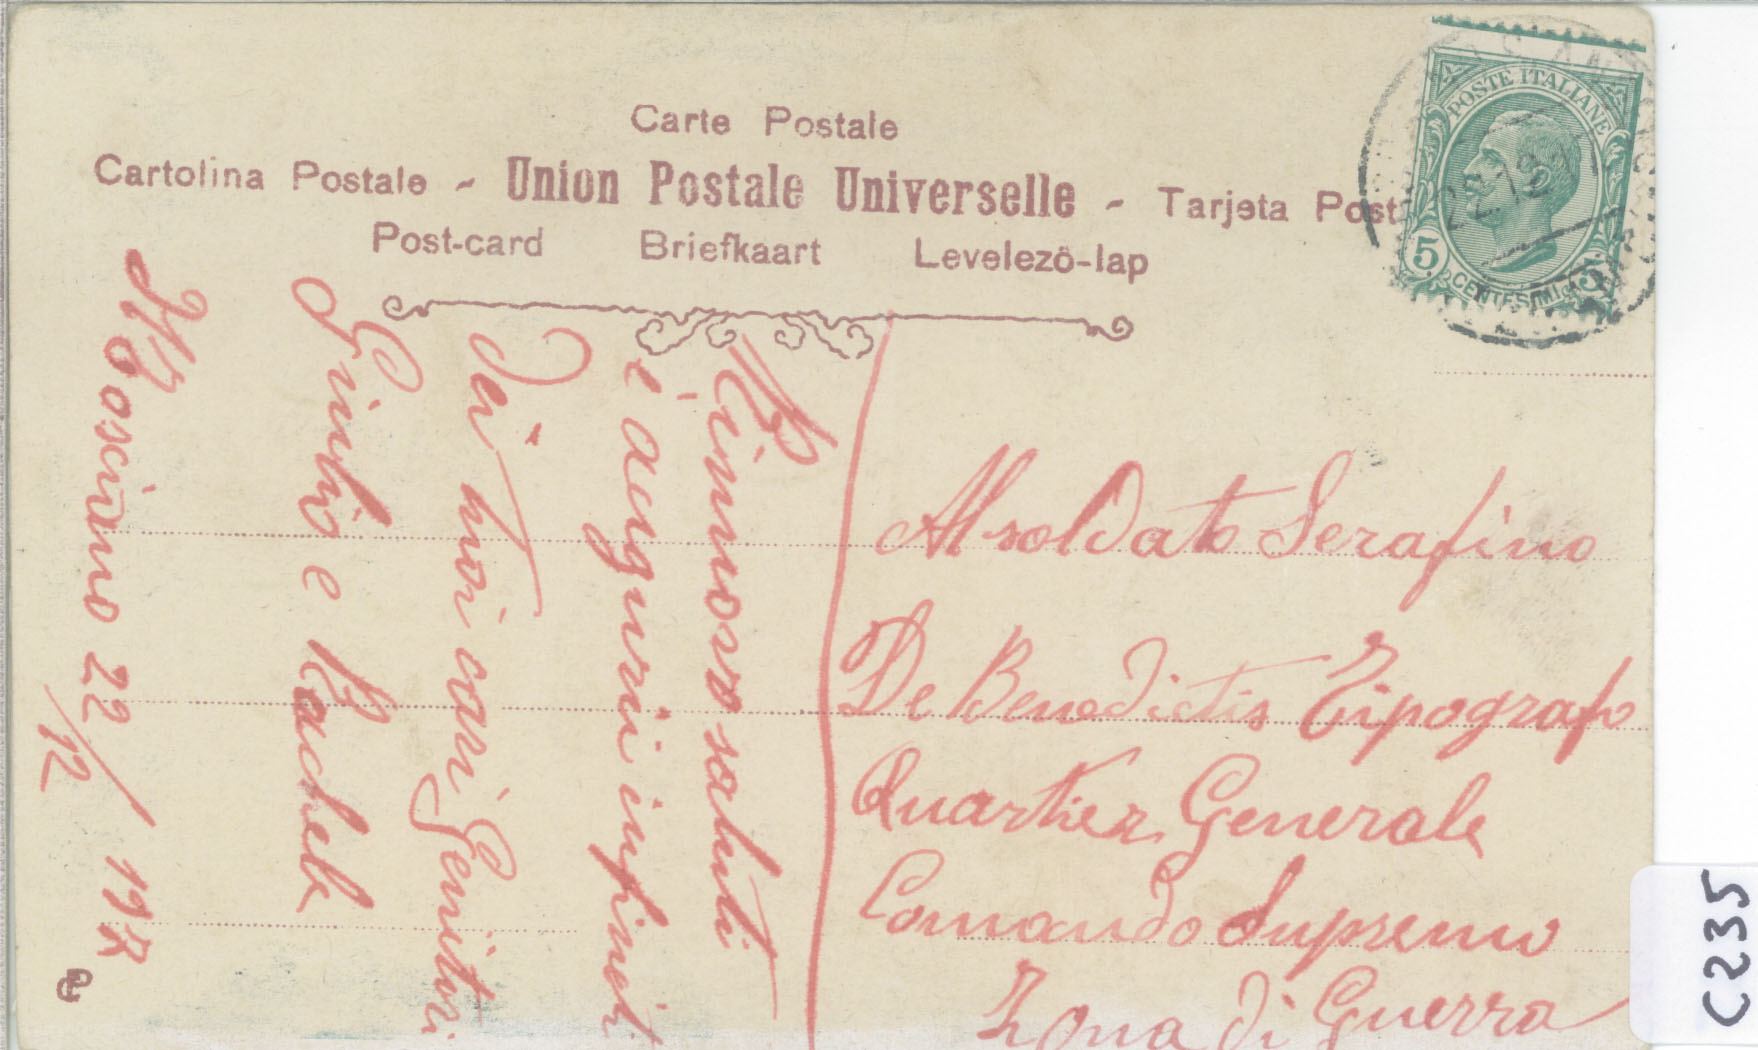 Carte Postale
Cartolina Postale - Union Postale Universelle - Tarjeta Post
Post-card Briefkaart Levelező-lap
POSTE ITALIANE
22.12
5 CENTESIMI 5
Rinnovo saluti
e auguri infiniti
dei tuoi cari Genitori
Giulio e Rachele
Mosciano 22/12 917
Al soldato Serafino
De Benedictis Tipografo
Quartier Generale
Comando Supremo
Zona di Guerra
C235